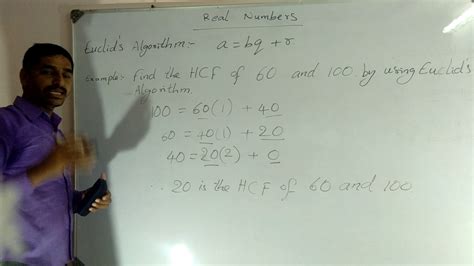 Real Numbers
Euclid's Algorithm:- a = bq + r
Example:- find the HCF of 60 and 100 by using Euclid's
Algorithm.
100 = 60(1) + 40
60 = 40(1) + 20
40 = 20(2) + 0
∴ 20 is the HCF of 60 and 100